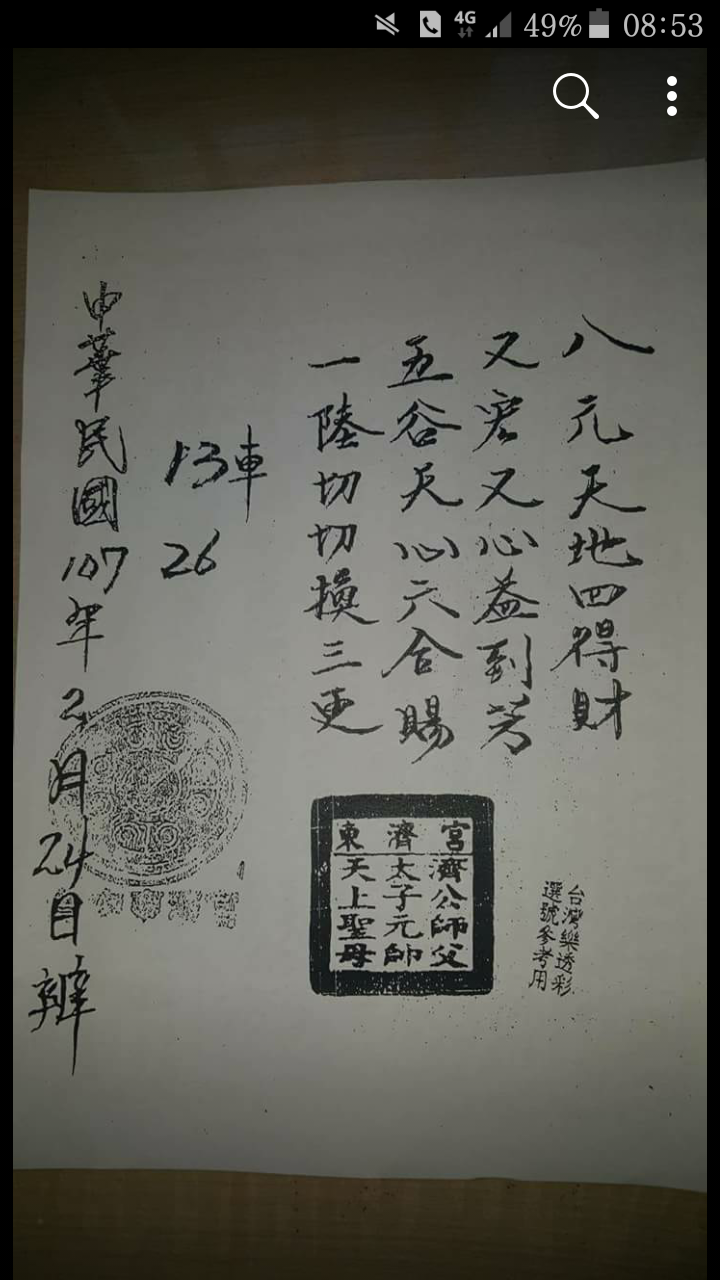 4G 49% 08:53
八元天地四得財
又宏又心益到芳
五谷天心六合賜
一陸切切換三更
13車
26
中華民國107年2月24日辦
東濟宮
濟公師父
太子元帥
天上聖母
台灣樂透彩
選號參考用